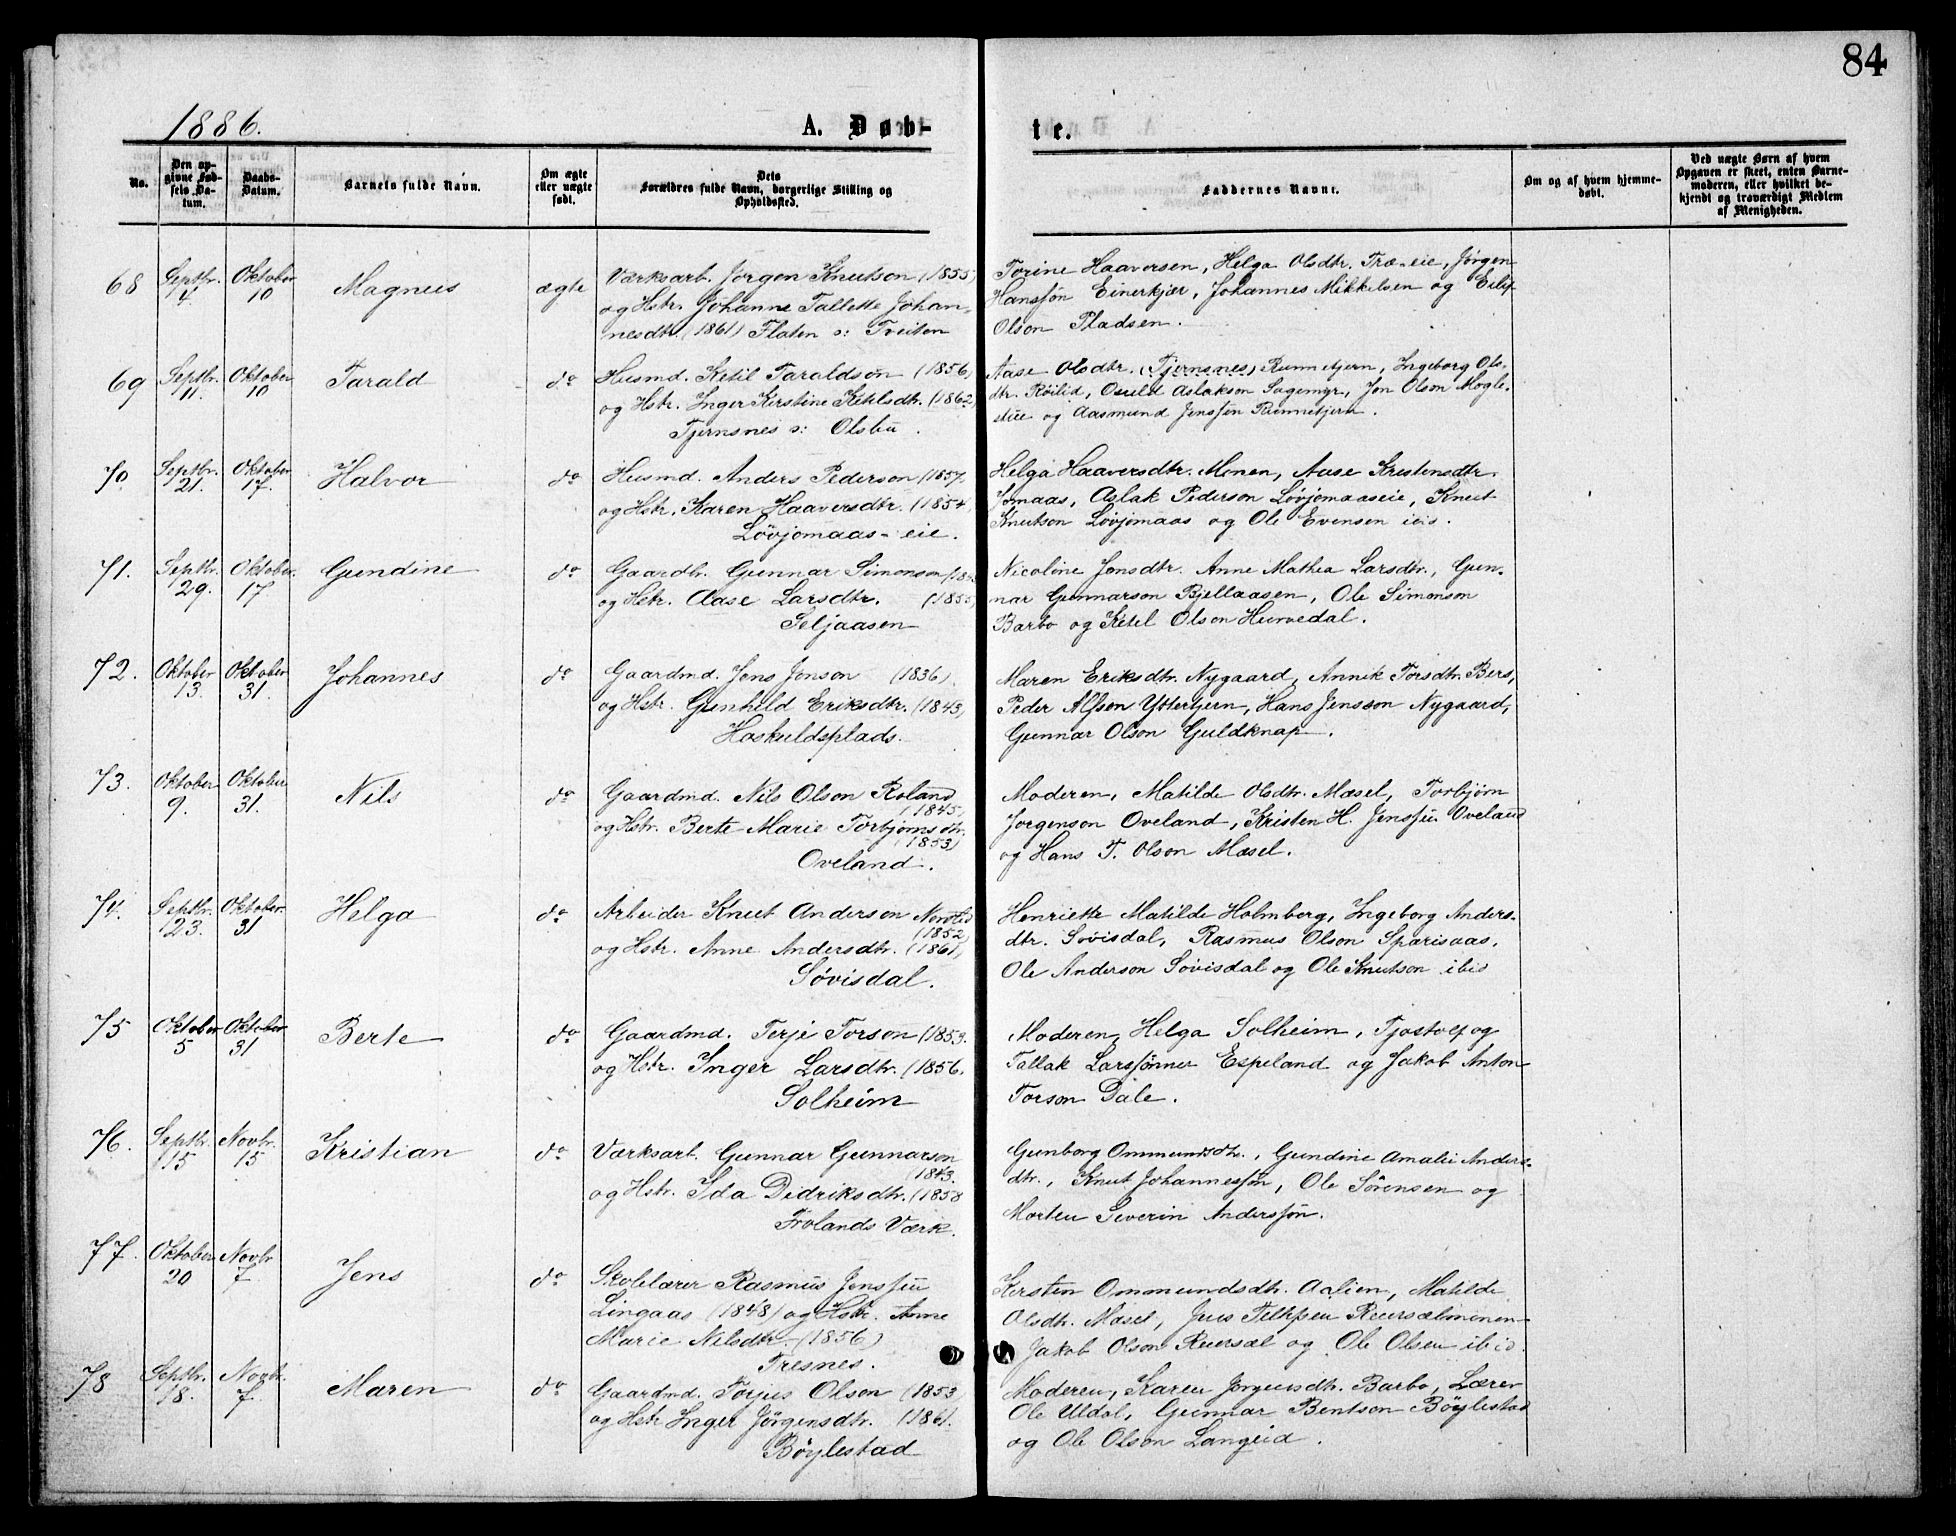 84
1886.
A. Døb-
te.
No.
Den op-
givne Fød-
sels-Da-
tum.
Daabs-
Datum.
Barnets fulde Navn.
Om ægte
eller uægte
født.
Dets
Forældres fulde Navn, borgerlige Stilling og
Opholdssted.
Faddernes Navne.
Om og af hvem hjemme-
døbt.
Ved uægte Børn af hvem
Opgaven er skeet, enten Barne-
moderen, eller hvilket be-
kjendt og troværdigt Medlem
af Menigheden.
68 Septbr. 4 Oktober 10 Magnus ægte
Værksarb. Jørgen Knutson (1855)
og Hstr. Johanne Tallette Johan-
nesdtr. (1861) Flaten o: Tveiten
Torine Haaversen, Helga Olsdtr. Træ-eie, Jørgen
Hansson Einerkjær, Johannes Mikkelsen og Eilif
Olson Pladsen.
69 Septbr. 11. Oktober 10 Tarald do
Husmd. Ketil Taraldson (1856)
og Hstr. Inger Kerstine Ketilsdtr. (1862)
Tjernsnes o: Olsbu.
Aase Olsdtr. (Tjernsnes) Runnetjern, Ingeborg Ols-
dtr. Røilid, Osuld Aslakson Sagemyr, Jon Olson Mogle-
stue og Aasmund Jensson Runnetjern.
70 Septbr. 21. Oktober 17. Halvor do
Husmd. Anders Pederson (1857.
og Hstr. Karen Haaversdtr. (1854,
Løvjomaas-eie.
Helga Haaversdtr. Monen, Aase Kristensdtr.
Jomaas, Aslak Pederson Løvjomaaseie, Knut
Knutson Løvjomaas og Ole Evensen ibid.
71. Septbr. 29. Oktober. 17 Gundine do
Gaardbr. Gunnar Simonson
og Hstr. Aase Larsdtr. (1855)
Seljaasen
Nicoline Jonsdtr. Anne Mathea Larsdtr., Gun-
nar Gunnarson Bjellaasen, Ole Simonson
Barbo og Ketil Olson Hurvedal.
72. Oktober 13. Oktober 31. Johannes do
Gaardmd. Jens Jonson (1836).
og Hstr. Gunhild Eriksdtr. (1843)
Hoskuldsplads.
Maren Eriksdtr. Nygaard, Annik Torsdtr. Bers,
Peder Alfson Yttertjern, Hans Jensson Nygaard,
Gunnar Olson Guldknap.
73. Oktober 9. Oktober 31. Nils do
Gaardmd. Nils Olson Roland
(1845,
og Hstr. Berte Marie Torbjørnsdtr.
(1853)
Oveland.
Moderen, Matilde Olsdtr. Mæsel, Torbjørn
Jorgenson Oveland, Kristen H. Jenssøn Oveland
og Hans T. Olson Mæsel.
74. Septbr. 23. Oktober. 31 Helga do
Arbeider Knut Anderson
(1852)
og Hstr. Anne Andersdtr. (1861)
Søvisdal.
Henriette Matilde Holmberg, Ingeborg Anders-
dtr. Søvisdal, Rasmus Olson Sparisaas.
Ole Anderson Søvisdal og Ole Knutson ibid
75 Oktober 5 Oktober 31 Berte do
Gaardmd. Terje Torson (1853.
og Hstr. Inger Larsdtr. (1856.
Solheim
Moderen, Helga Solheim, Tjostolf og
Tallak Larssønner Espeland og Jakob Anton
Torson Dale.
76. Septbr. 15 Novbr. 15 Kristian do
Værksarb. Gunnar Gunnarson
1843.
og Hstr. Ida Didriksdtr. (1858
Frolands Værk.
Gunborg Ommundsdtr., Gundine Amalie Anders-
dtr., Knut Johannessøn, Ole Sörensen og
Morten Severin Anderssøn.
77. Oktober 20 Novbr 7. Jens do
Skolelærer Rasmus Jenssøn
Lingaas (1848) og Hstr. Anne
Marie Nilsdtr. (1856)
Tresnes.
Kersten Ommundsdtr. Aalien, Matilde
Olsdtr. Mæsel, Jens Reiersælmonen
Jakob Olson Reiersæl og Ole Olsen ibid.
78 Septbr. 18. Novbr. 7. Maren do
Gaardmd. Torjus Olson (1853)
og Hstr Inger Jörgensdtr. (1861.
Bøylestad
Moderen, Karen Jørgensdtr. Barbo, Lærer
Ole Uldal, Gunnar Bentson Bøylestad
og Ole Olson Langeid.